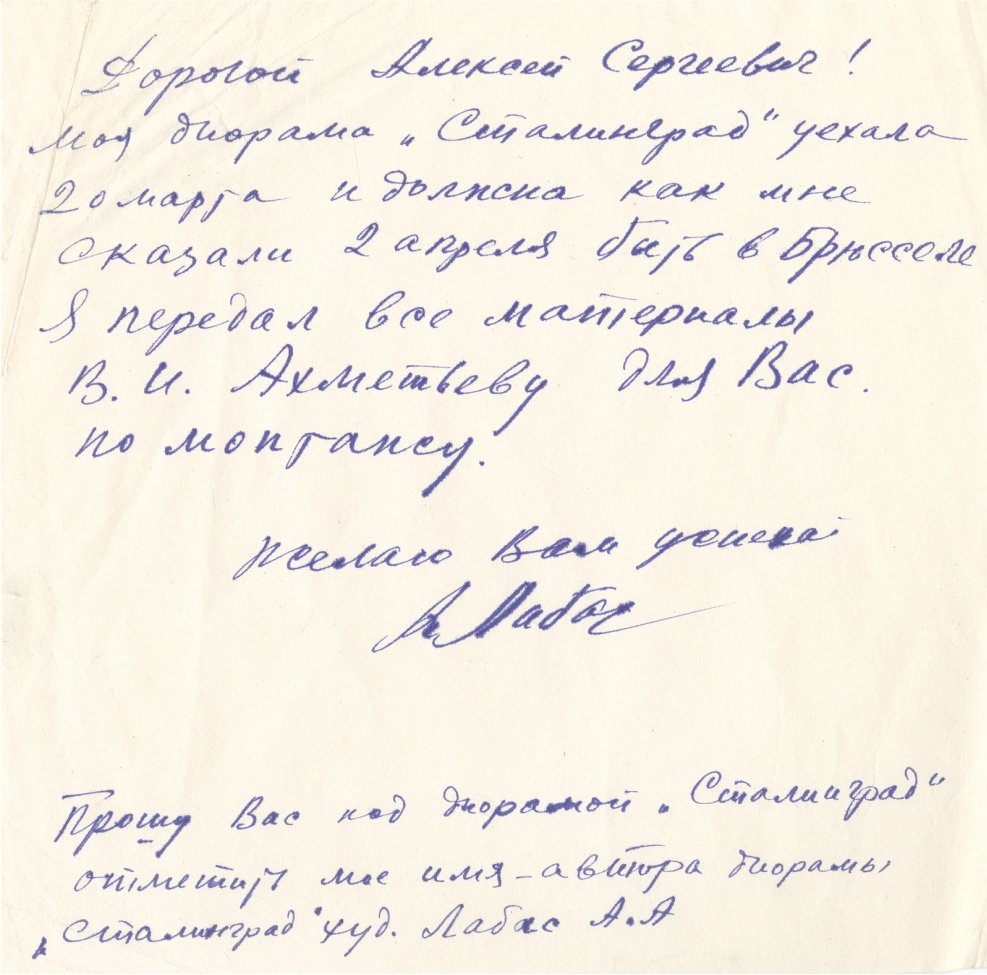 Дорогой Алексей Сергеевич!
моя диорама „Сталинград" уехала
20 марта и должна как мне
сказали 2 апреля быть в Брюсселе
Я передал все материалы
В. И. Ахметьеву для Вас.
по монтажу.
Желаю Вам успеха
А. Лабас
Прошу Вас под диорамой „Сталинград"
отметить мое имя - автора диорамы
„Сталинград" худ. Лабас А.А